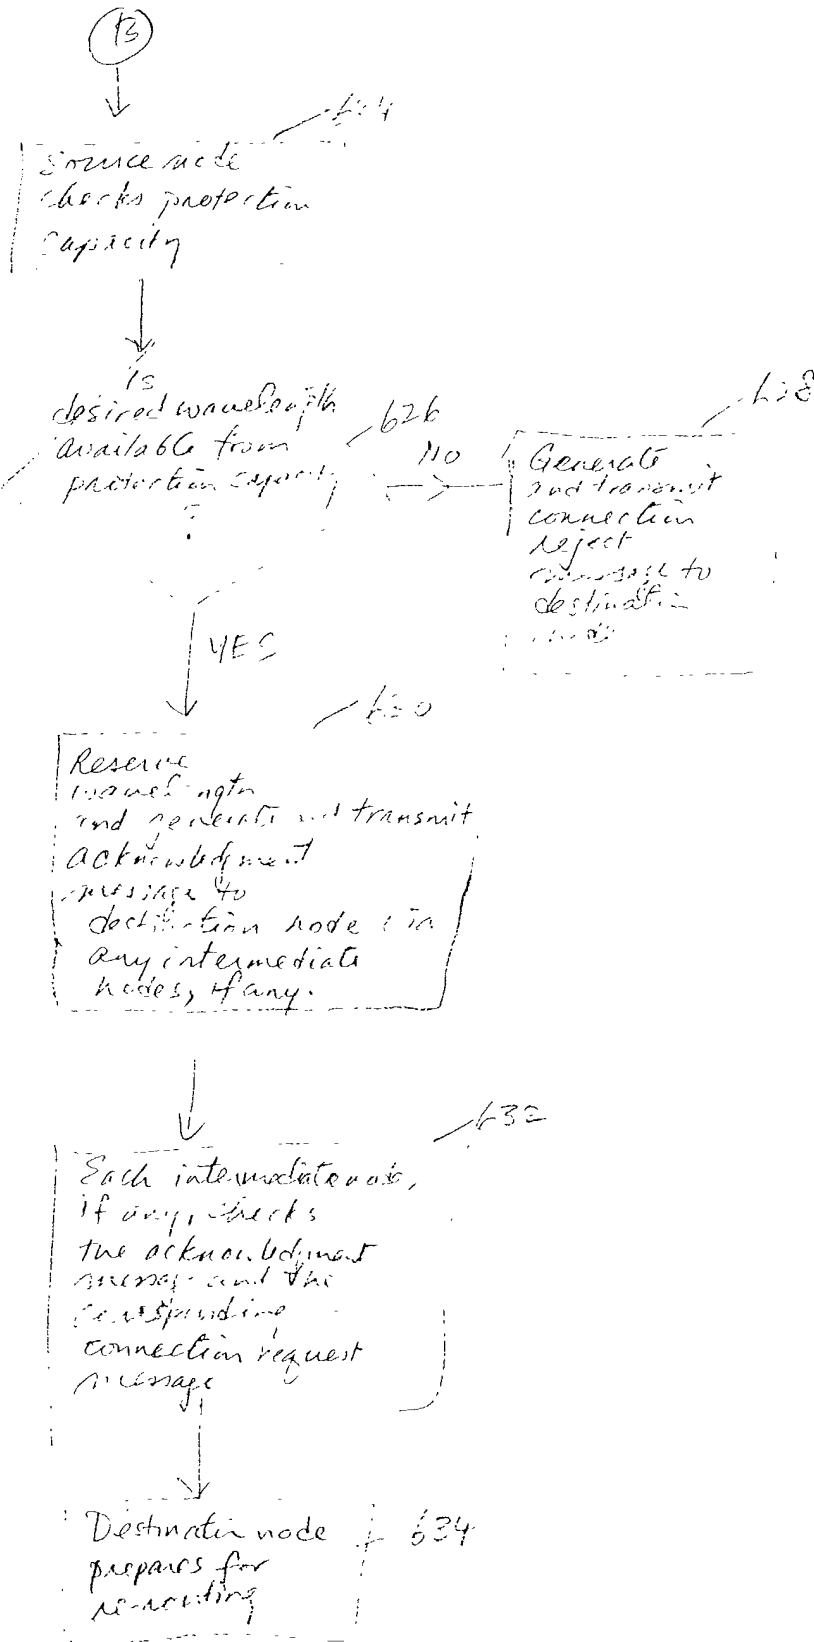 B
624
Source node
checks protection
capacity
Is
desired wavelength
available from
protection capacity
?
626
NO
628
Generate
and transmit
connection
reject
message to
destination
node
YES
630
Reserve
wavelength
and generate and transmit
acknowledgment
message to
destination node via
any intermediate
nodes, if any.
632
Each intermediate node,
if any, checks
the acknowledgment
message and the
corresponding
connection request
message
Destination node
prepares for
re-routing
634